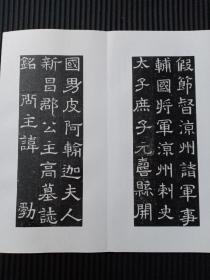 假節督涼州諸軍事
輔國將軍涼州刺史
太子庶子元壽縣開
國男皮阿輸迦夫人
新昌郡公主高墓誌
銘 尚主諱 勤